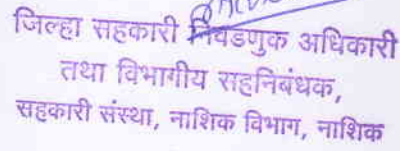 जिल्हा सहकारी निवडणुक अधिकारी
तथा विभागीय सहनिबंधक,
सहकारी संस्था, नाशिक विभाग, नाशिक